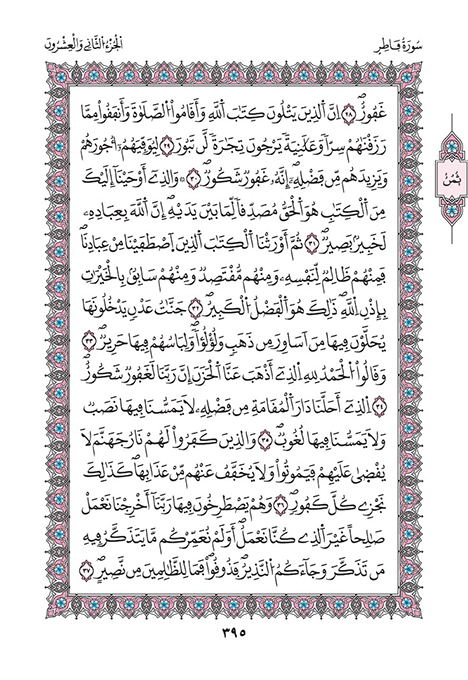 سُورَةُ فَاطِرٍ
الجُزْءُ الثَّانِي وَالْعِشْرُونَ
غَفُورٌۖ ٢٨ إِنَّ اَلذِينَ يَتْلُونَ كِتَٰبَ اَللَّهِ وَأَقَامُواْ اُلصَّلَوٰةَ وَأَنفَقُواْ مِمَّا
رَزَقْنَٰهُمْ سِرّاٗ وَعَلَٰنِيَةٗ يَرْجُونَ تِجَٰرَةٗ لَّن تَبُورَ ٢٩ لِيُوَفِّيَهُمُۥٓ أُجُورَهُمْ
وَيَزِيدَهُم مِّن فَضْلِهِۦٓۖ إِنَّهُۥ غَفُورٞ شَكُورٞۖ ٣٠ وَالذِےٓ أَوْحَيْنَآ إِلَيْكَ
ثُمُنٌ
مِنَ اَلْكِتَٰبِ هُوَ اَلْحَقُّ مُصَدِّقاٗ لِّمَا بَيْنَ يَدَيْهِۖ إِنَّ اَللَّهَ بِعِبَادِهِۦ
لَخَبِيرُۢ بَصِيرٞۖ ٣١ ثُمَّ أَوْرَثْنَا اَلْكِتَٰبَ اَلذِينَ اَصْطَفَيْنَا مِنْ عِبَادِنَاۖ
فَمِنْهُمْ ظَالِمٞ لِّنَفْسِهِۦ وَمِنْهُم مُّقْتَصِدٞ وَمِنْهُمْ سَابِقُۢ بِالْخَيْرَٰتِ
بِإِذْنِ اِللَّهِۖ ذَٰلِكَ هُوَ اَلْفَضْلُ اُلْكَبِيرُۖ ٣٢ جَنَّٰتُ عَدْنٖ يَدْخُلُونَهَا
يُحَلَّوْنَ فِيهَا مِنْ أَسَاوِرَ مِن ذَهَبٖ وَلُؤْلُؤاٗۖ وَلِبَاسُهُمْ فِيهَا حَرِيرٞۖ ٣٣
وَقَالُواْ اُلْحَمْدُ لِلهِ اِلذِےٓ أَذْهَبَ عَنَّا اَلْحَزَنَۖ إِنَّ رَبَّنَا لَغَفُورٞ شَكُورٌ
٣٤ اِلذِےٓ أَحَلَّنَا دَارَ اَلْمُقَامَةِ مِن فَضْلِهِۦ لَا يَمَسُّنَا فِيهَا نَصَبٞ
وَلَا يَمَسُّنَا فِيهَا لُغُوبٞۖ ٣٥ وَالذِينَ كَفَرُواْ لَهُمْ نَارُ جَهَنَّمَ لَا
يُقْضَىٰ عَلَيْهِمْ فَيَمُوتُواْ وَلَا يُخَفَّفُ عَنْهُم مِّنْ عَذَابِهَاۖ كَذَٰلِكَ
نَجْزِے كُلَّ كَفُورٖۖ ٣٦ وَهُمْ يَصْطَرِخُونَ فِيهَا رَبَّنَآ أَخْرِجْنَا نَعْمَلْ
صَٰلِحاً غَيْرَ اَلذِے كُنَّا نَعْمَلُۖ أَوَلَمْ نُعَمِّرْكُم مَّا يَتَذَكَّرُ فِيهِ
مَن تَذَكَّرَ وَجَآءَكُمُ اُلنَّذِيرُۖ فَذُوقُواْ فَمَا لِلظَّٰلِمِينَ مِن نَّصِيرٍۖ ٣٧
٣٩٥